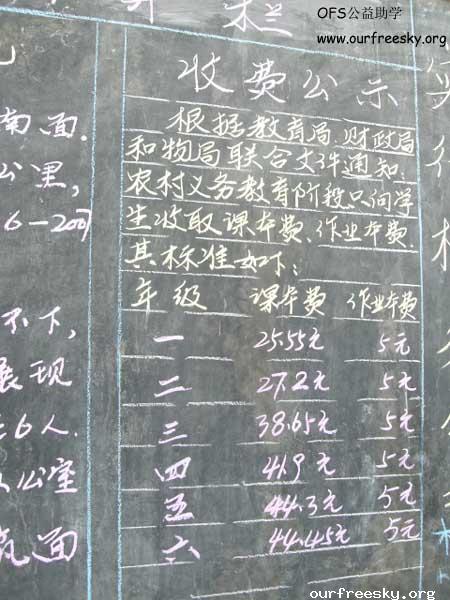 OFS公益助学
www.ourfreesky.org
栏
收费公示
根据教育局、财政局
和物局联合文件通知:
农村义务教育阶段只向学
生收取课本费、作业本费.
其标准如下:
年级 课本费 作业本费
一 25.55元 5元
二 27.2元 5元
三 38.65元 5元
四 41.9元 5元
五 44.3元 5元
六 44.45元 5元
南面.
公里,
6—2007
不下,
展现
6人.
公室
筑面
ourfreesky.org